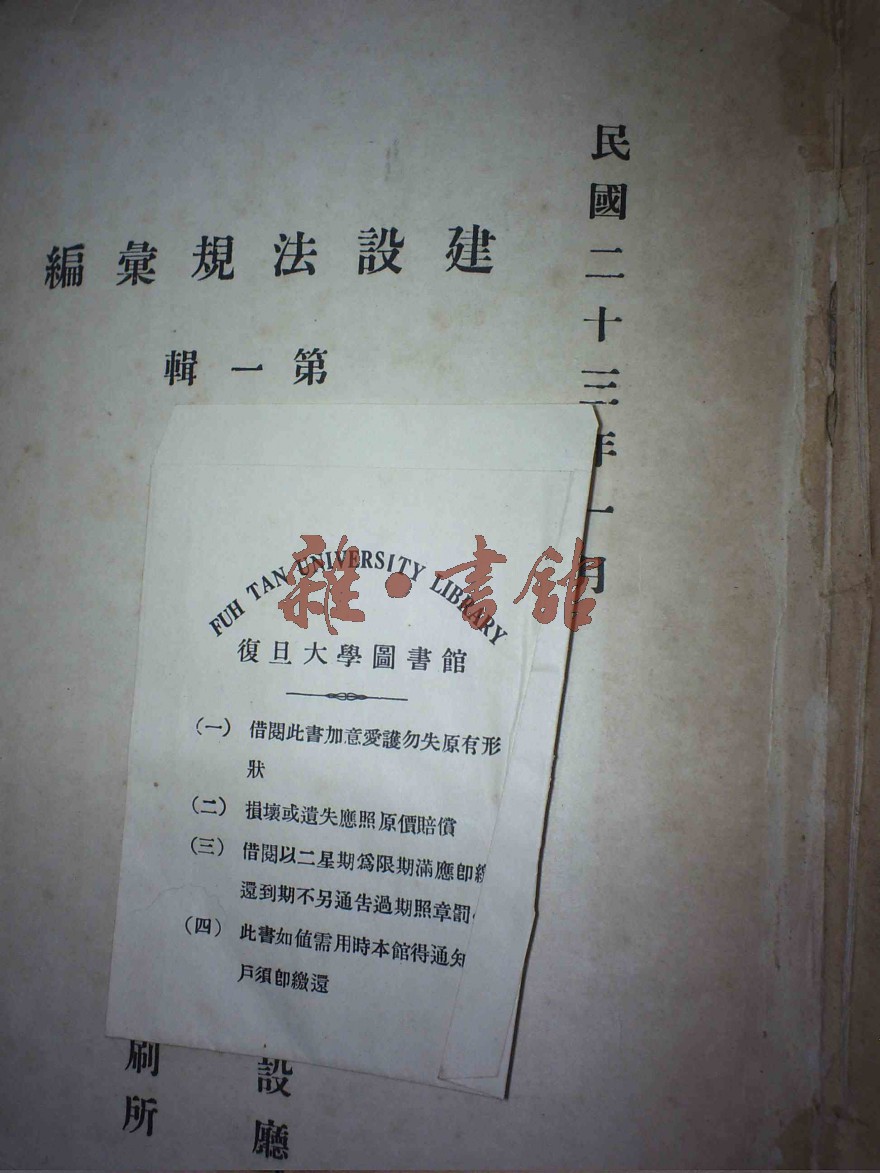 民國二十三年一月
建設法規彙編
第一輯
FUH TAN UNIVERSITY LIBRARY
雜·書館
復旦大學圖書館
(一) 借閱此書加意愛護勿失原有形
狀
(二) 損壞或遺失應照原價賠償
(三) 借閱以二星期爲限期滿應卽繳
還到期不另通告過期照章罰
(四) 此書如値需用時本館得通知
戶須卽繳還
設廳
刷所